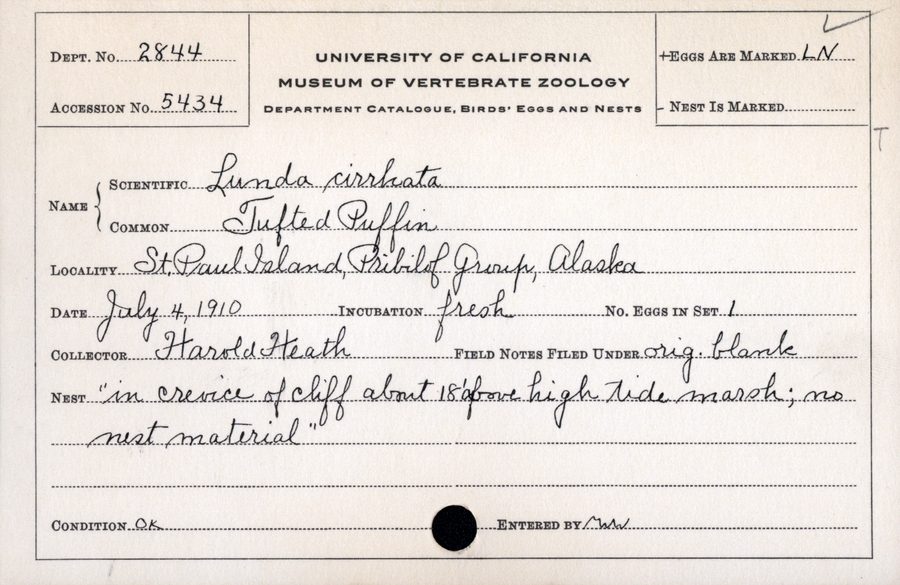 DEPT. No. 2844
ACCESSION No. 5434
UNIVERSITY OF CALIFORNIA
MUSEUM OF VERTEBRATE ZOOLOGY
DEPARTMENT CATALOGUE, BIRDS' EGGS AND NESTS
+EGGS ARE MARKED LN
- NEST IS MARKED
T
NAME { SCIENTIFIC Lunda cirrhata
COMMON Tufted Puffin
LOCALITY St. Paul Island, Pribilof Group, Alaska
DATE July 4, 1910 INCUBATION fresh NO. EGGS IN SET 1
COLLECTOR Harold Heath FIELD NOTES FILED UNDER orig. blank
NEST "in crevice of cliff about 18' above high tide marsh; no
nest material"
CONDITION OK ENTERED BY